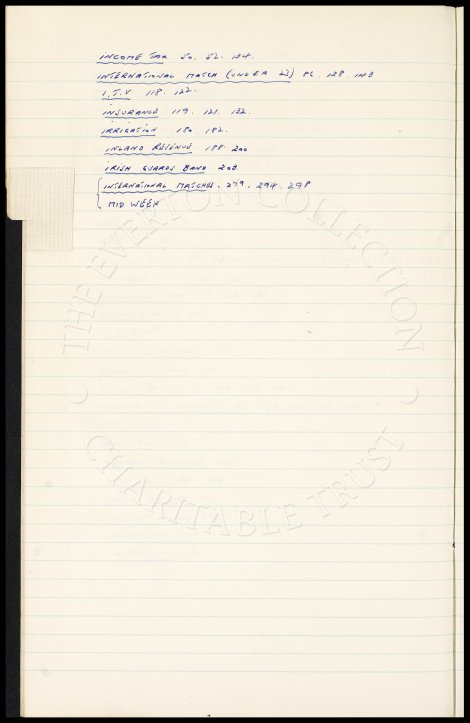 INCOME TAX 50. 52. 134.
INTERNATIONAL MATCH (UNDER 23) 86. 138. 143
I.T.V 118. 122.
INSURANCE 119. 121. 132.
IRRIGATION 180. 182.
INLAND REVENUE 188 200
IRISH GUARDS BAND 203.
INTERNATIONAL MATCHES. 279. 294. 298
MID WEEK
THE EVERTON COLLECTION
CHARITABLE TRUST